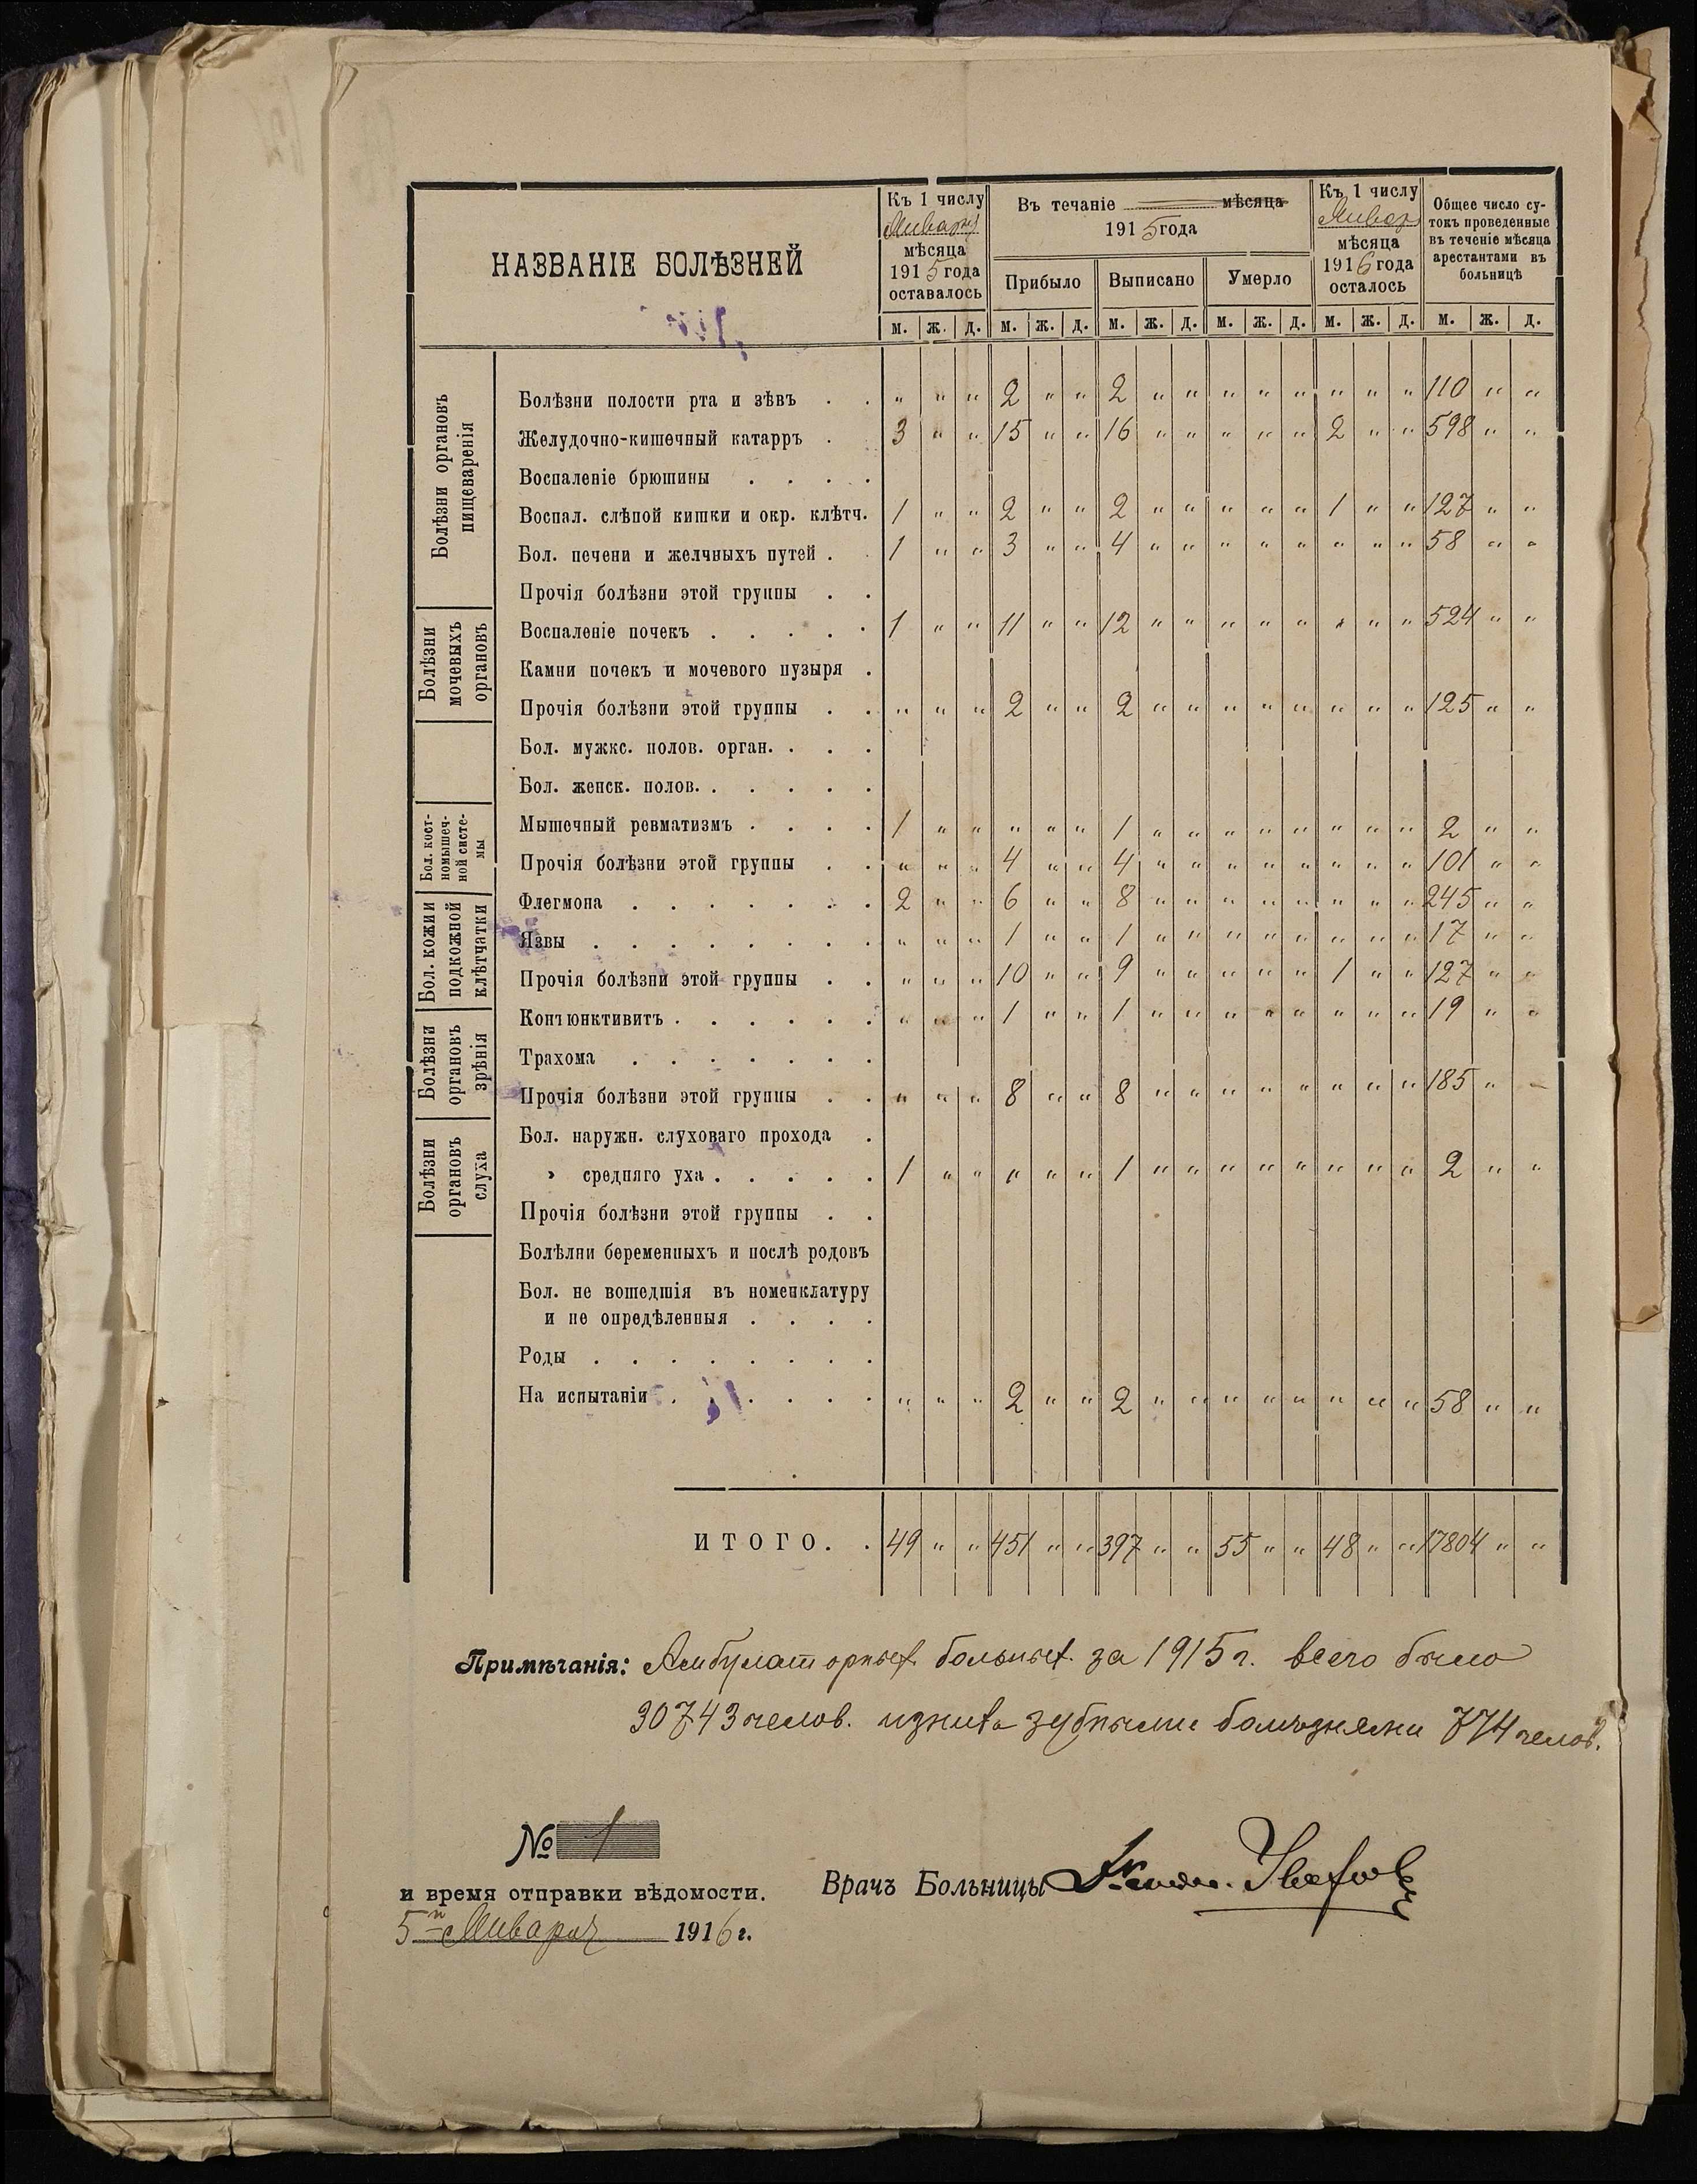 НАЗВАНІЕ БОЛѢЗНЕЙ
Къ 1 числу
Января
мѣсяца
1915 года
оставалось
Въ теченіе мѣсяца
1915 года
Прибыло Выписано Умерло
Къ 1 числу
Января
мѣсяца
1916 года
осталось
Общее число су-
токъ проведенные
въ теченіе мѣсяца
арестантами въ
больницѣ
м. ж. д. м. ж. д. м. ж. д. м. ж. д. м. ж. д. м. ж. д.
Болѣзни органовъ
пищеваренія
Болѣзни полости рта и зѣвъ . . " " " 2 " " 2 " " " " " " " " 110 " "
Желудочно-кишечный катарръ . 3 " " 15 " " 16 " " " " " 2 " " 598 " "
Воспаленіе брюшины . . . .
Воспал. слѣпой кишки и окр. клѣтч. 1 " " 2 " " 2 " " " " " 1 " " 127 " "
Бол. печени и желчныхъ путей . 1 " " 3 " " 4 " " " " " " " " 58 " "
Прочія болѣзни этой группы . .
Болѣзни
мочевыхъ
органовъ
Воспаленіе почекъ . . . . . 1 " " 11 " " 12 " " " " " " " " 524 " "
Камни почекъ и мочевого пузыря .
Прочія болѣзни этой группы . . " " " 2 " " 2 " " " " " " " " 125 " "
Бол. мужкс. полов. орган. . . .
Бол. женск. полов. . . . . .
Бол. кост-
номышеч-
ной систе-
мы
Мышечный ревматизмъ . . . . 1 " " " " " 1 " " " " " " " " 2 " "
Прочія болѣзни этой группы . . " " " 4 " " 4 " " " " " " " " 101 " "
Бол. кожии
подкожной
клѣтчатки
Флегмона . . . . . . . 2 " " 6 " " 8 " " " " " " " " 245 " "
Язвы . . . . . . . . " " " 1 " " 1 " " " " " " " " 17 " "
Прочія болѣзни этой группы . . " " " 10 " " 9 " " " " " 1 " " 127 " "
Болѣзни
органовъ
зрѣнія
Конъюнктивитъ . . . . . . " " " 1 " " 1 " " " " " " " " 19 " "
Трахома . . . . . . .
Прочія болѣзни этой группы . . " " " 8 " " 8 " " " " " " " " 185 " "
Болѣзни
органовъ
слуха
Бол. наружн. слуховаго прохода .
› средняго уха . . . . . 1 " " " " " 1 " " " " " " " " 2 " "
Прочія болѣзни этой группы . .
Болѣлни беременныхъ и послѣ родовъ
Бол. не вошедшія въ номенклатуру
и не опредѣленныя . . . .
Роды . . . . . . . .
На испытаніи . . . . . . " " " 2 " " 2 " " " " " " " " 58 " "
ИТОГО. . 49 " " 451 " " 397 " " 55 " " 48 " " 17804 " "
Примѣчанія: Амбулаторныхъ больныхъ за 1915 г. всего было
30743 челов. изнихъ зубными болѣзнями 774 челов.
№ 1
и время отправки вѣдомости.
5го Января 1916 г.
Врачъ Больницы